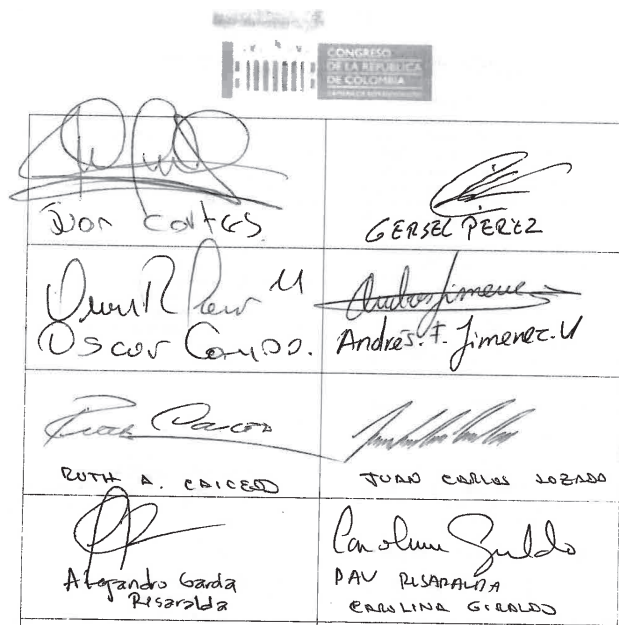 CONGRESO
DE LA REPÚBLICA
DE COLOMBIA
Juan Cortes.
GERSEL PEREZ
Oscar Campo.
Andrés Jimenez
Andrés. F. Jimenez. V
RUTH A. CAICEDO
JUAN CARLOS LOZADA
Alejandro García
Risaralda
Carolina Giraldo
PAV RISARALDA
CAROLINA GIRALDO